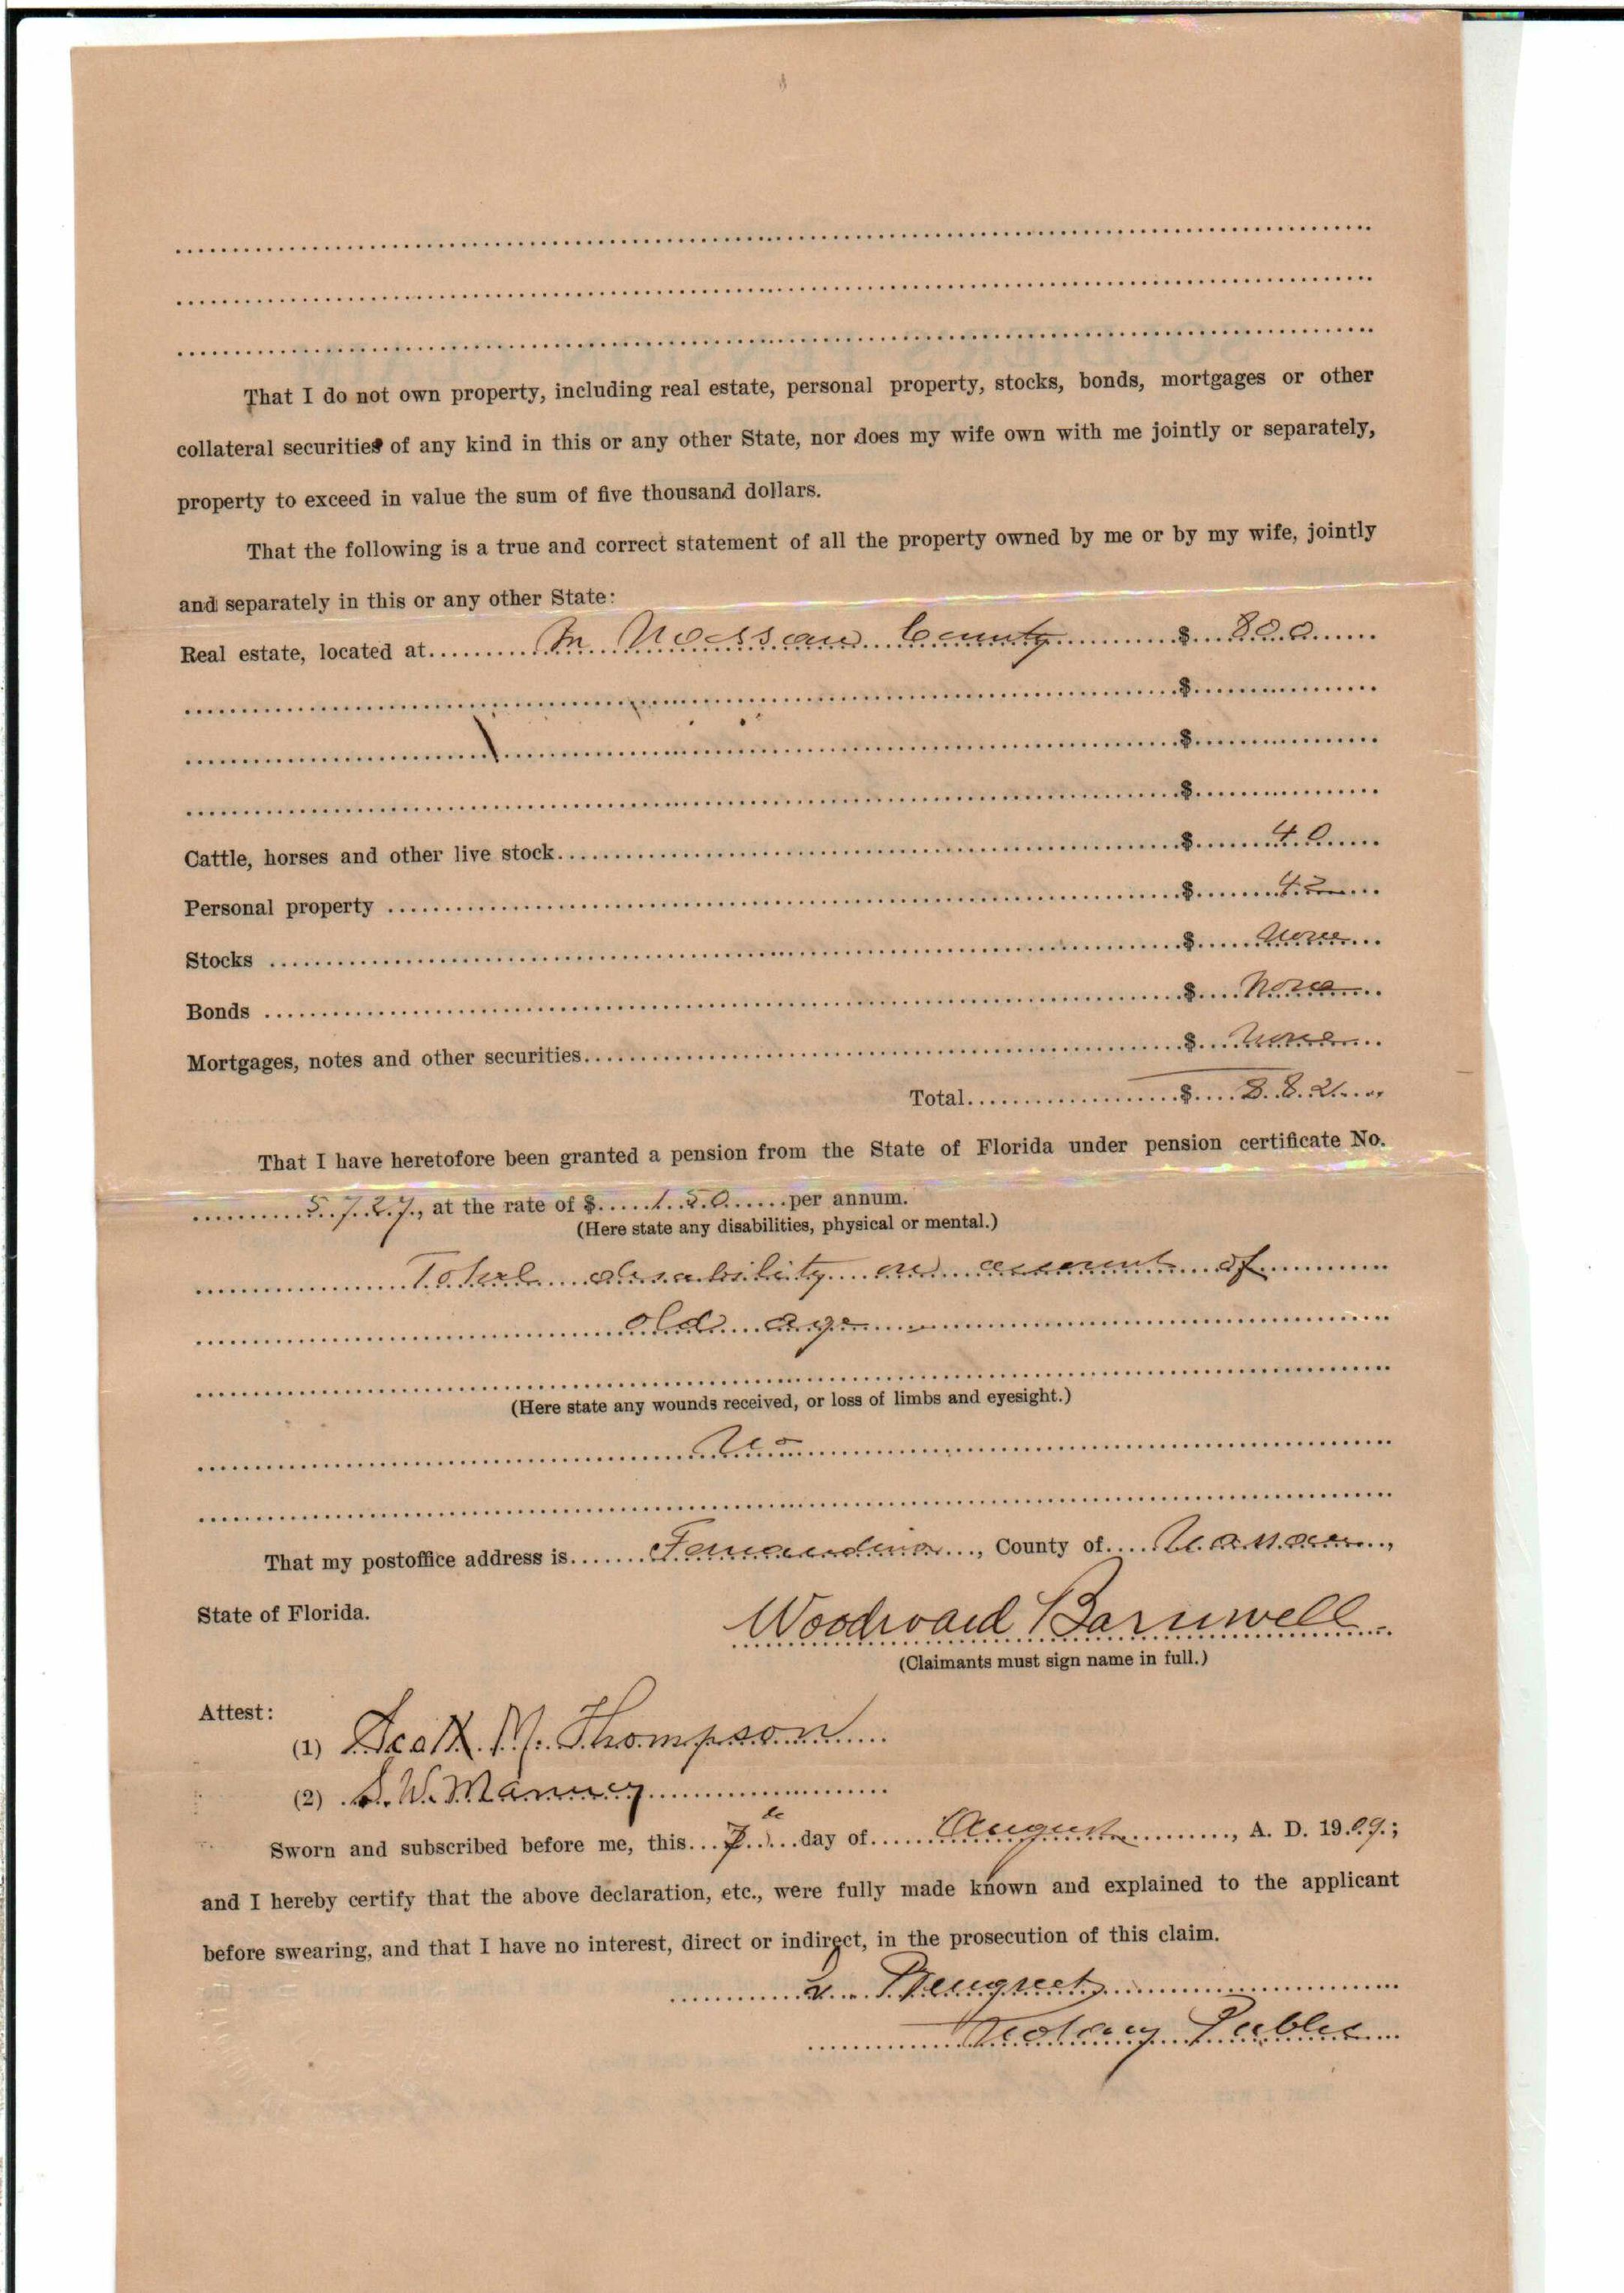 That I do not own property, including real estate, personal property, stocks, bonds, mortgages or other
collateral securities of any kind in this or any other State, nor does my wife own with me jointly or separately,
property to exceed in value the sum of five thousand dollars.
That the following is a true and correct statement of all the property owned by me or by my wife, jointly
and separately in this or any other State:
Real estate, located at In Nassau County $ 800
$
$
$
Cattle, horses and other live stock $ 40
Personal property $ 42
Stocks $ None
Bonds $ None
Mortgages, notes and other securities $ None
Total $ 882
That I have heretofore been granted a pension from the State of Florida under pension certificate No.
5727, at the rate of $ 150 per annum.
(Here state any disabilities, physical or mental.)
Total disability on account of
old age
(Here state any wounds received, or loss of limbs and eyesight.)
No
That my postoffice address is Fernandina, County of Nassau,
State of Florida.
Woodward Barnwell
(Claimants must sign name in full.)
Attest:
(1) Scott M. Thompson
(2) S. W. Manucy
Sworn and subscribed before me, this 7 day of August, A. D. 1909;
and I hereby certify that the above declaration, etc., were fully made known and explained to the applicant
before swearing, and that I have no interest, direct or indirect, in the prosecution of this claim.
Notary Public